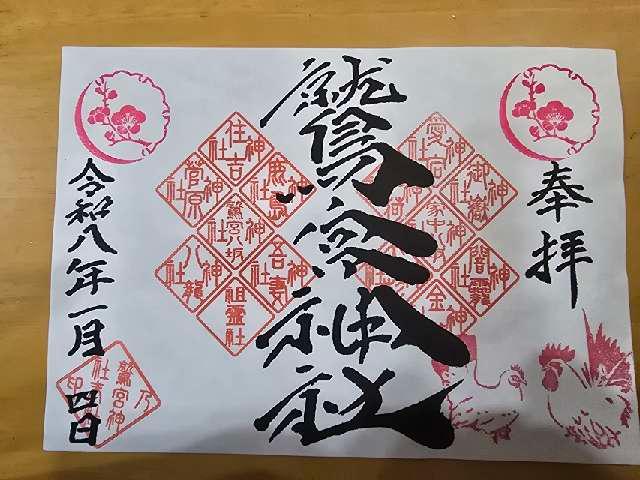 奉拝
愛宕神社
御嶽神社
家中社
闇龗神社
金神社
鷲宮神社
住吉神社
鹿島神社
菅原神社
鷲宮八坂神社
吾妻神社
八龍神社
祖霊社
令和八年一月四日
鷲宮神社乃印